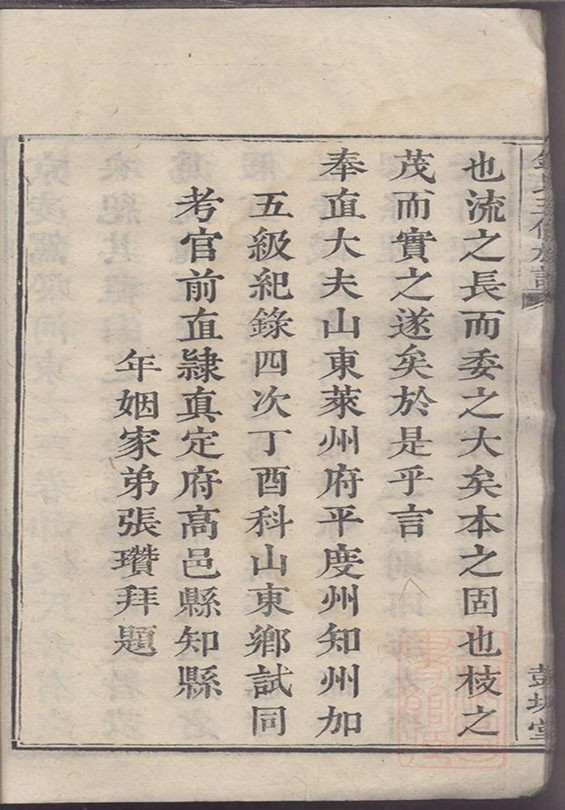 也流之長而委之大矣本之固也枝之
茂而實之遂矣於是乎言
奉直大夫山東萊州府平度州知州加
五級紀錄四次丁酉科山東鄉試同
考官前直隷真定府高邑縣知縣
年姻家弟張瓚拜題